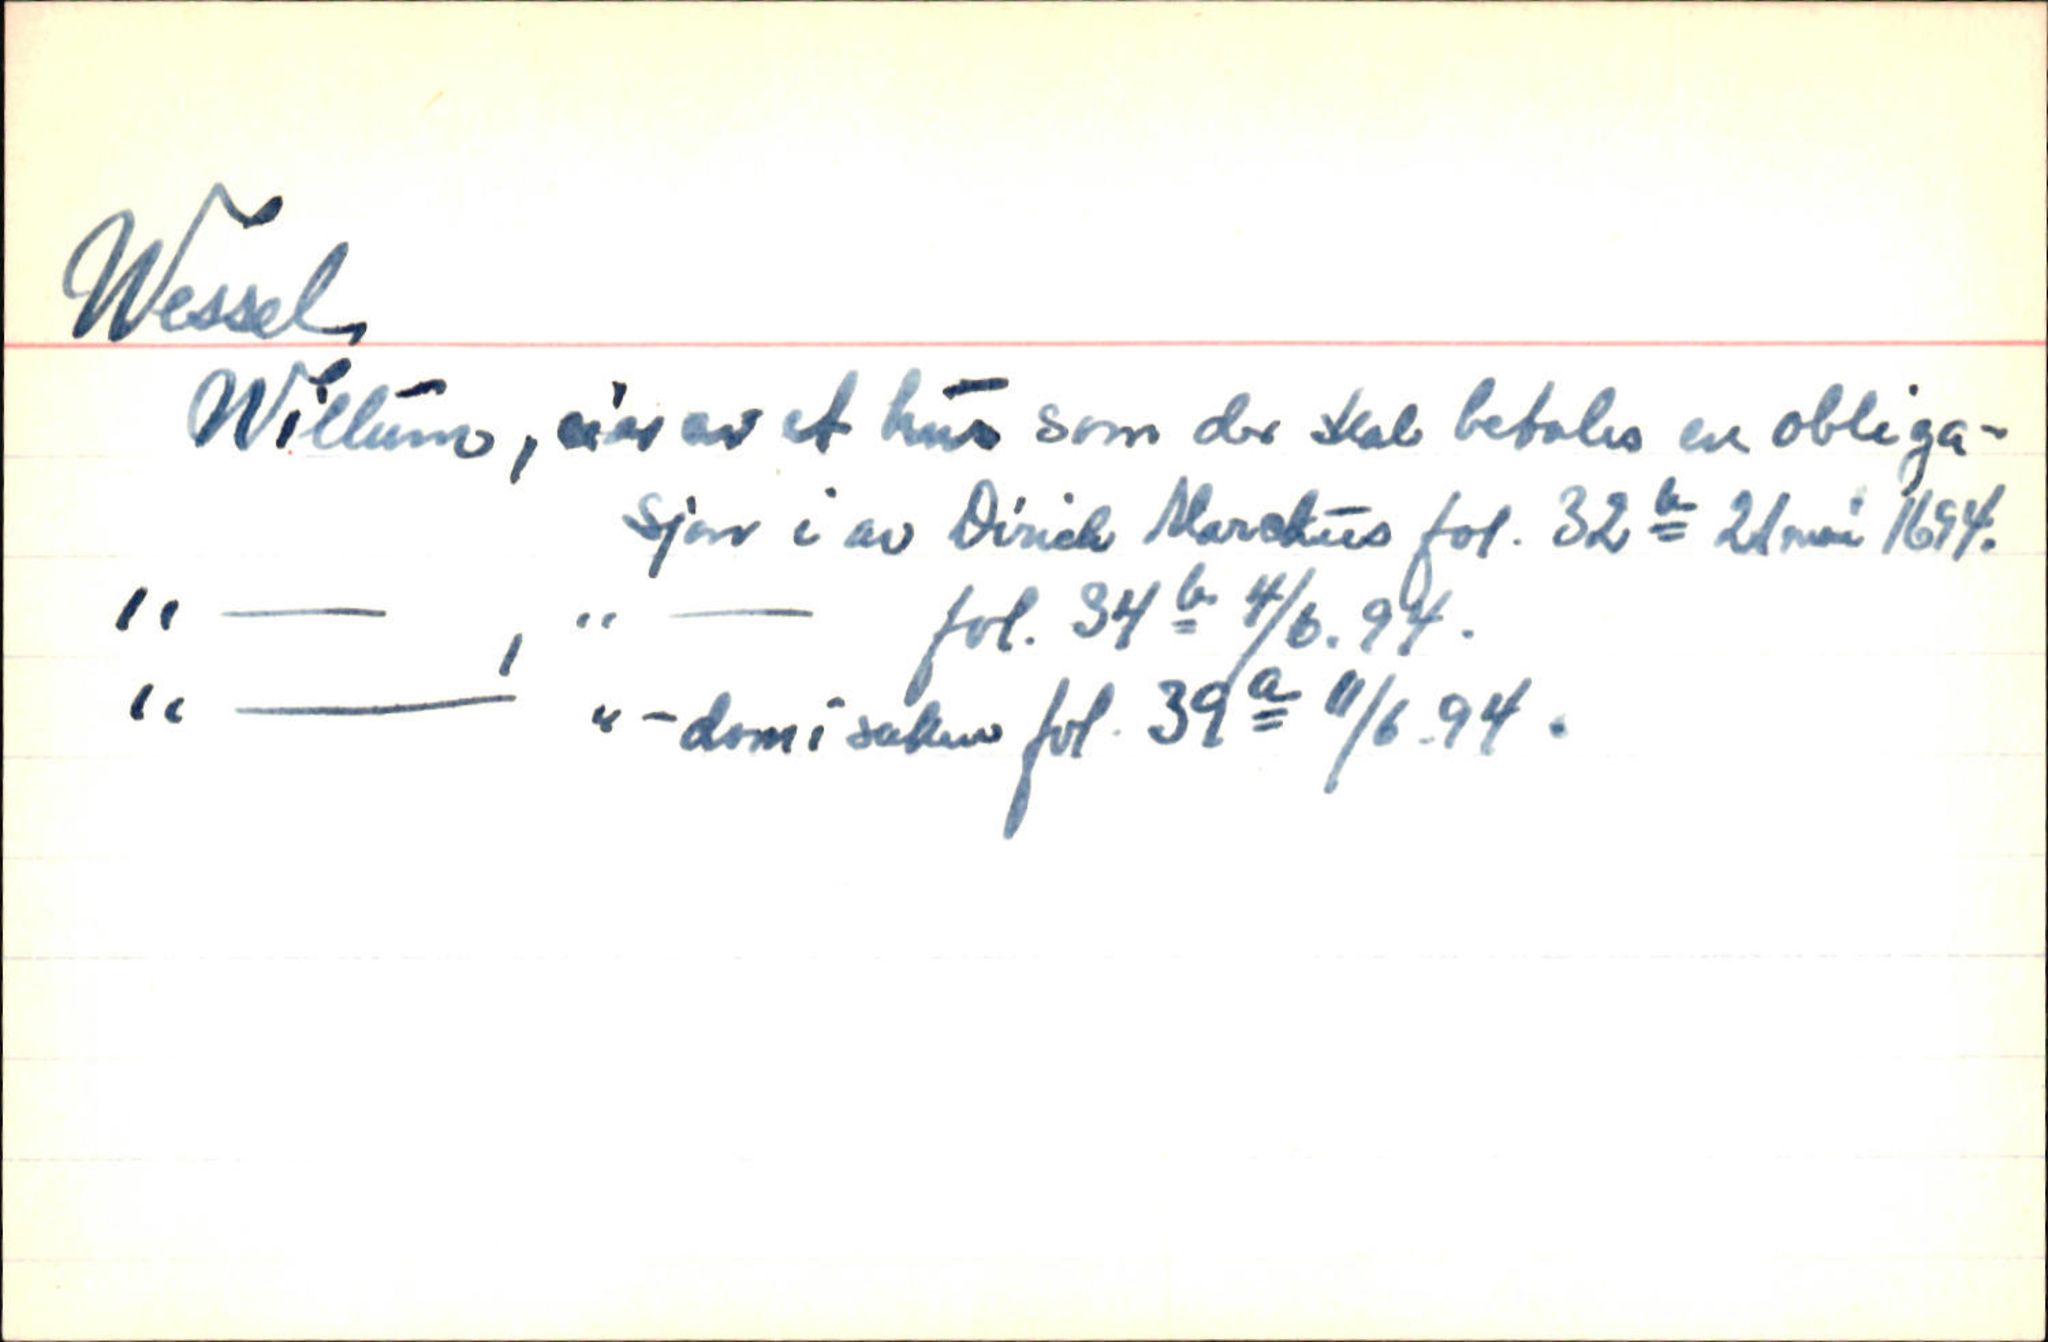 Wessel,
Willum, eier av et hus som der skal betales en obliga-
sjon i av Dirich Marckus fol. 32 b 21 mai 1694.
" — , " — fol. 34 b 4/6. 94.
" — " - dom i saken fol. 39 a 11/6. 94.